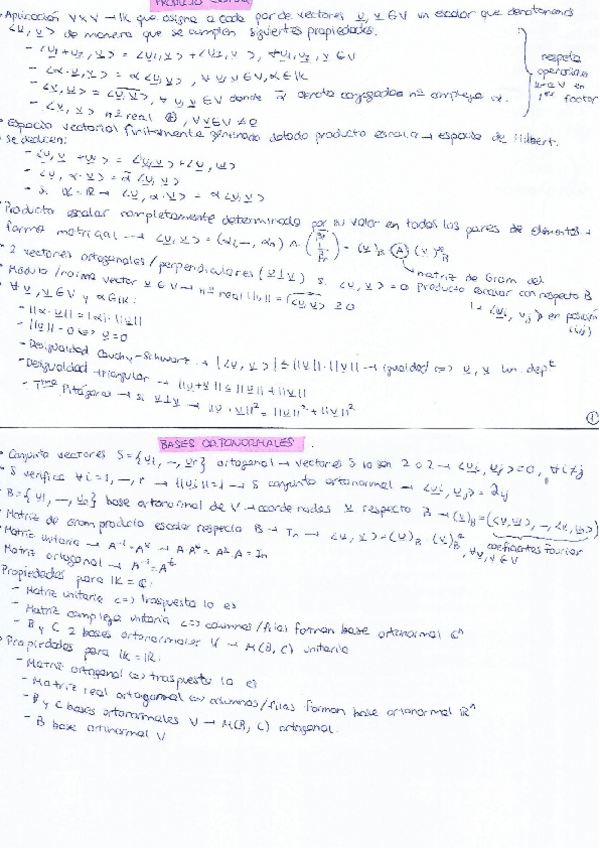 PRODUCTO ESCALAR
• Aplicación V×V → IK que asigna a cada par de vectores u, v ∈ V un escalar que denotaremos
<u, v> de manera que se cumplen siguientes propiedades.
- <u1+u2, v> = <u1, v> + <u2, v>, ∀u1, u2, v ∈ V
- <α·u, v> = α <u, v>, ∀ u, v ∈ V, α ∈ IK
- <u, v> = <v, u>, ∀ u, v ∈ V donde α denota conjugado nº complejo α.
- <v, v> nº real ⊕, ∀ v ∈ V ≠ 0
respeta
operaciones
en V en
1er factor
• Espacio vectorial finitamente generado dotado producto escalar → espacio de Hilbert.
• Se deducen:
- <u, v + w> = <u, v> + <u, w>
- <u, α·v> = α <u, v>
- si α = IR → <u, α·v> = α <u, v>
• Producto escalar completamente determinado por su valor en todos los pares de elementos +
forma matricial → <u, v> = (α1 –, αn) A = (u)B (A) (v)B
matriz de Gram del
producto escalar con respecto B
<vi, vj> en posición
(i,j)
• 2 vectores ortogonales/perpendiculares (u ⊥ v) si <u, v> = 0
• Módulo/norma vector v ∈ V → nº real ||v|| = √<v, v> ≥ 0
• ∀ u, v ∈ V y α ∈ IK:
- ||α·u|| = |α|·||u||
- ||u|| = 0 <=> u = 0
- Desigualdad Cauchy-Schwarz → |<u, v>| ≤ ||u||·||v|| → igualdad <=> u, v lin. dept
- Desigualdad triangular → ||u+v|| ≤ ||u|| + ||v||
- Tma Pitágoras → si u⊥v → ||u+v||² = ||u||² + ||v||²
1
BASES ORTONORMALES
• Conjunto vectores S = {u1, –, ur} ortogonal → vectores S lo son 2 a 2 → <ui, uj> = 0, ∀i≠j
• S verifica ∀i = 1, –, r → ||ui|| = 1 → S conjunto ortonormal → <ui, uj> = δij
• B = {u1, –, un} base ortonormal de V → coordenadas v respecto B → (v)B = (<v, u1>, –, <v, un>)
coeficientes fourier
• Matriz de Gram producto escalar respecto B → In → <u, v> = (u)B · (v)B, ∀u, v ∈ V
• Matriz unitaria → A⁻¹ = A* → A·A* = A*·A = In
• Matriz ortogonal → A⁻¹ = At
• Propiedades para IK = ℂ:
- Matriz unitaria <=> traspuesta lo es
- Matriz compleja unitaria <=> columnas/filas forman base ortonormal ℂn
- B y C 2 bases ortonormales V → M(B, C) unitaria
• Propiedades para IK = IR:
- Matriz ortogonal <=> traspuesta lo es
- Matriz real ortogonal <=> columnas/filas forman base ortonormal IRn
- B y C bases ortonormales V → M(B, C) ortogonal.
- B base ortonormal V